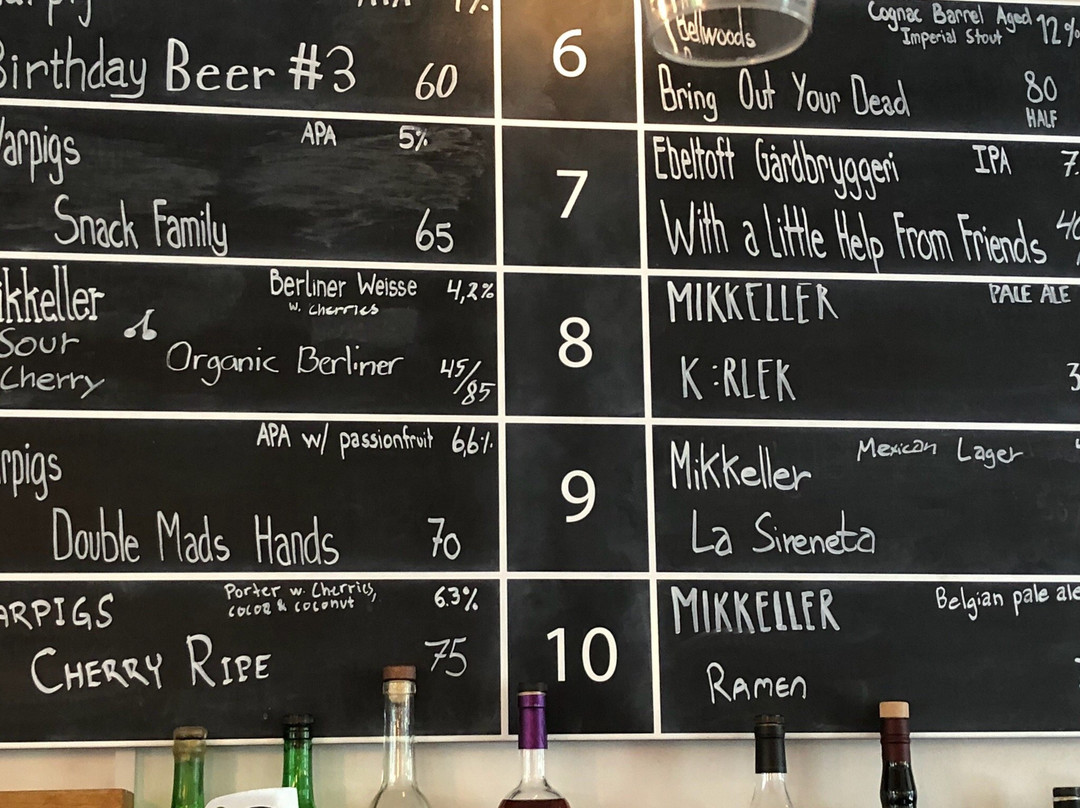 Birthday Beer #3 60
Warpigs APA 5%
Snack Family 65
Mikkeller Berliner Weisse 4,2%
w. cherries
Sour
Cherry Organic Berliner 45/85
Warpigs APA w/ passionfruit 6,6%
Double Mads Hands 70
WARPIGS Porter w. Cherries, 6.3%
cocoa & coconut
CHERRY RIPE 75
6
7
8
9
10
Bellwoods Cognac Barrel Aged 12%
Imperial Stout
Bring Out Your Dead 80
HALF
Ebeltoft Gårdbryggeri IPA 7.
With a Little Help From Friends 40
MIKKELLER PALE ALE
K:RLEK 3
Mikkeller Mexican Lager
La Sireneta
MIKKELLER Belgian pale ale
RAMEN